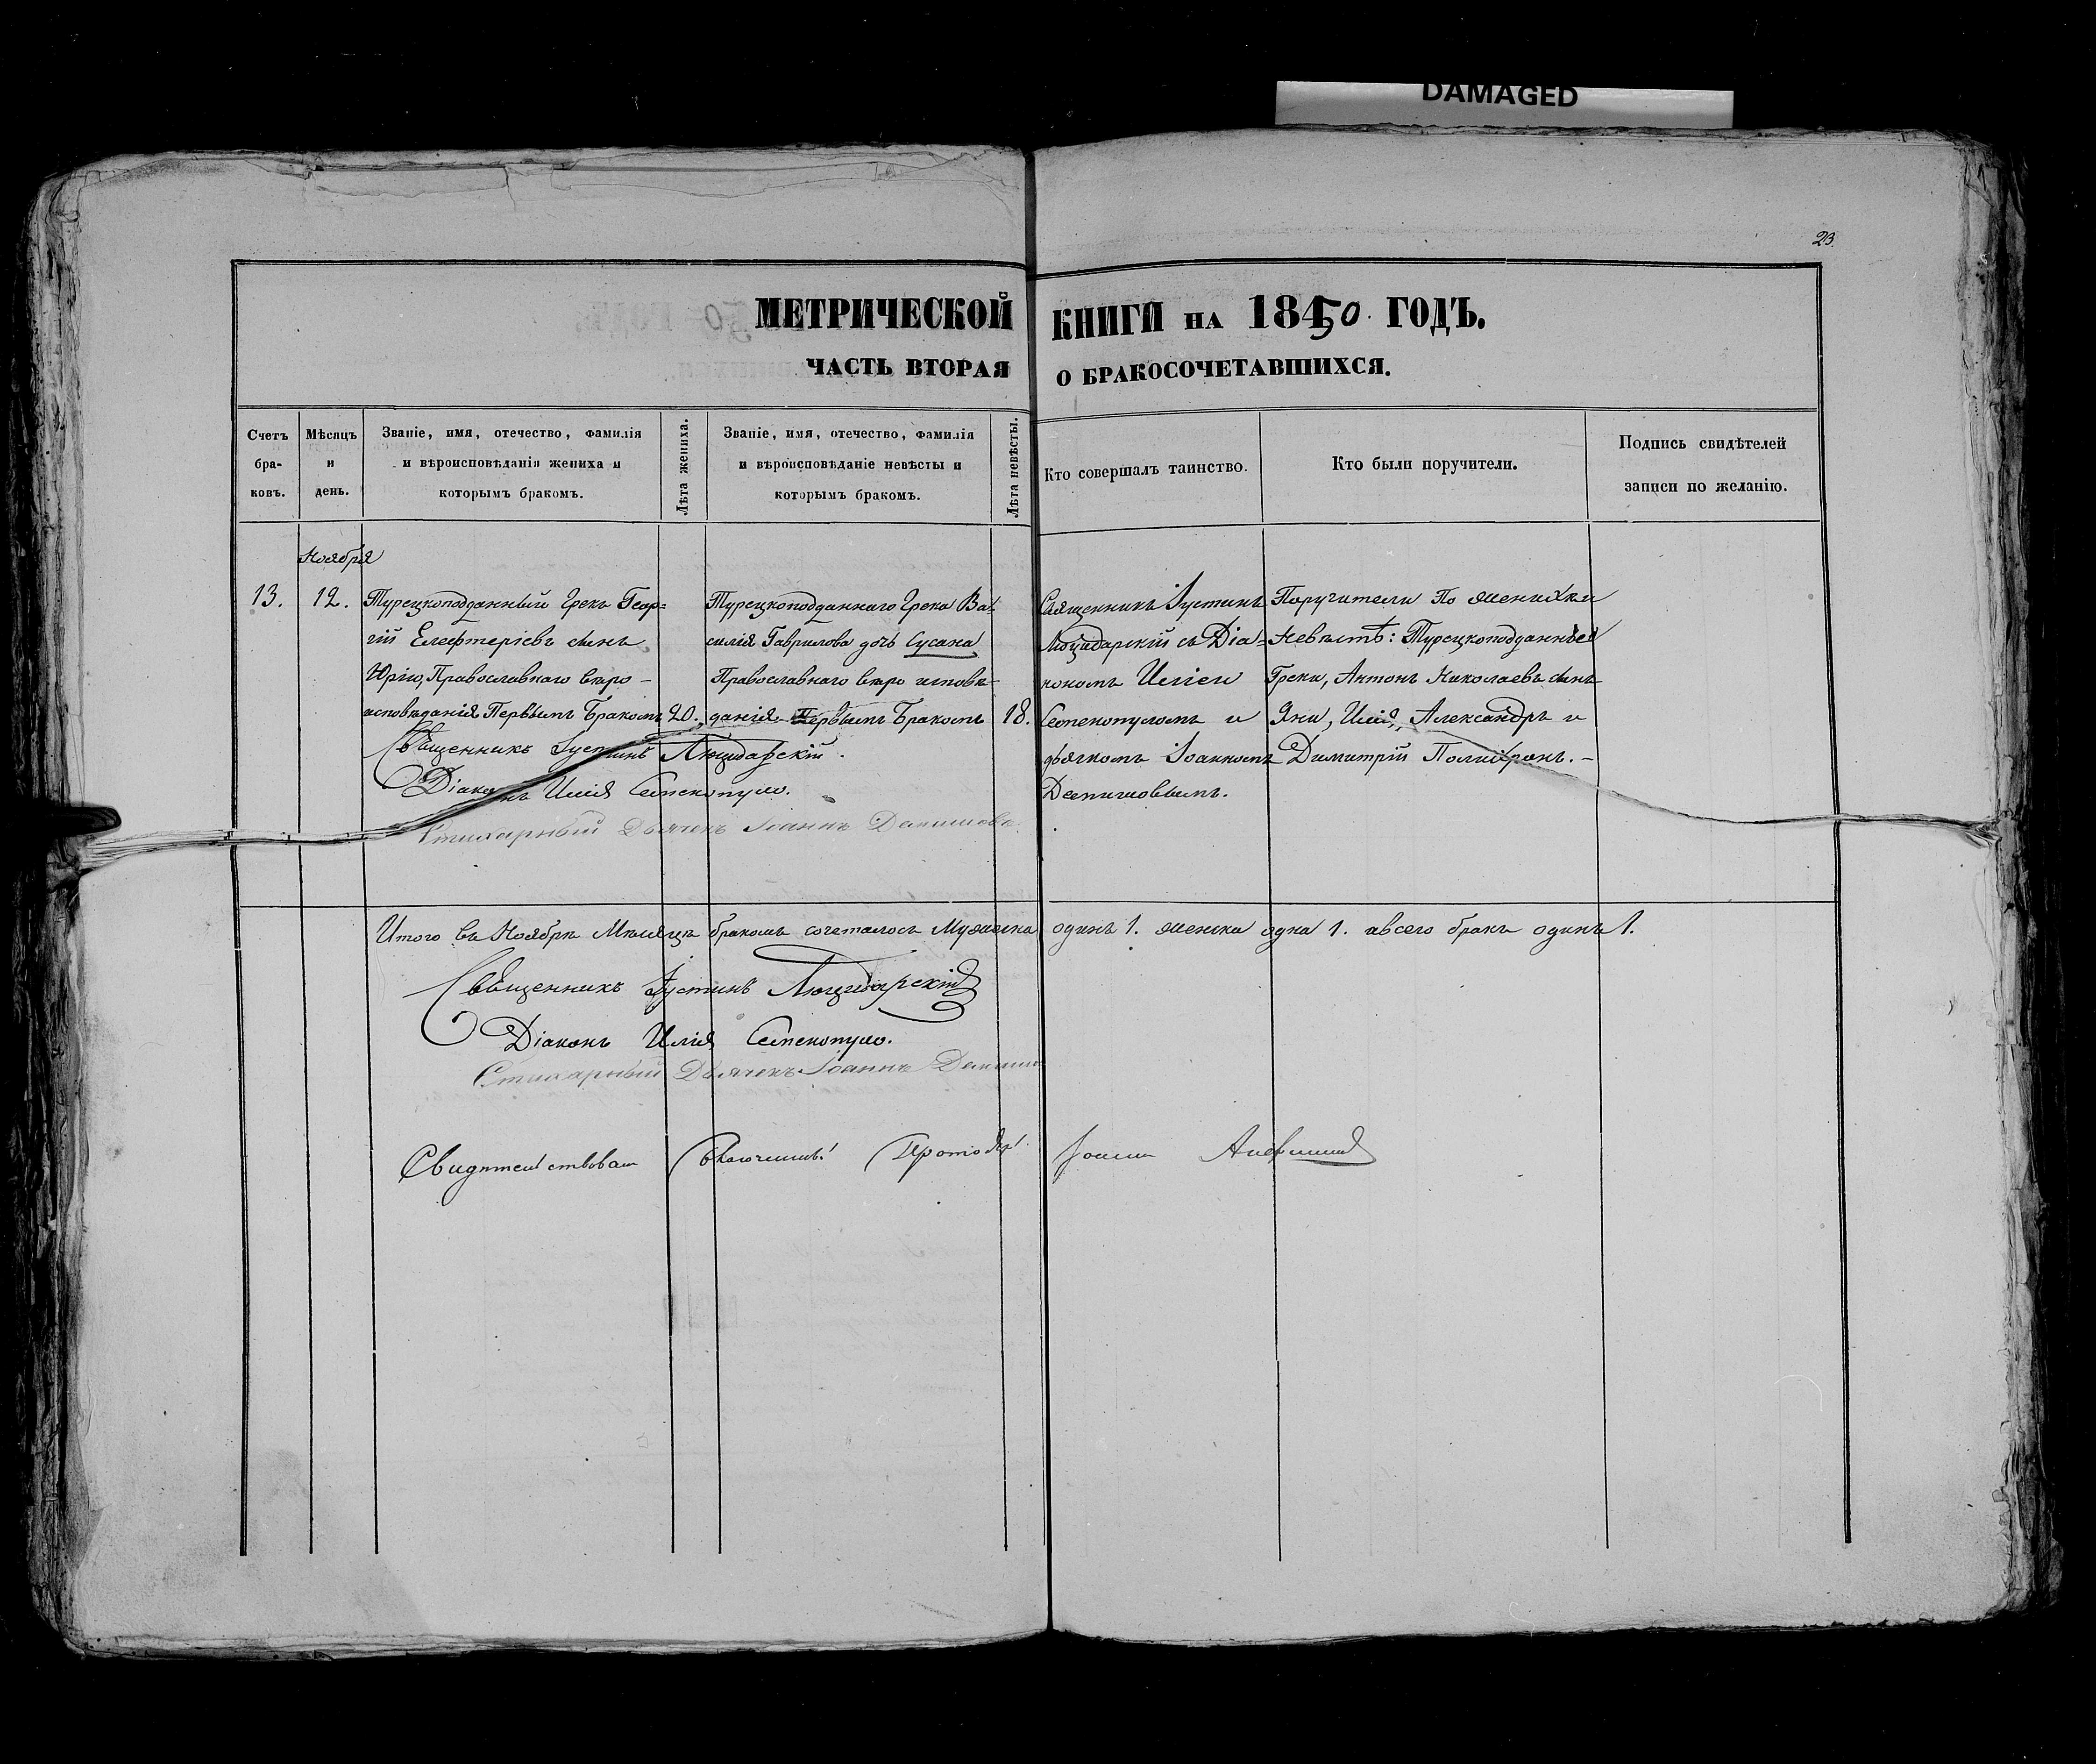 DAMAGED
23.
МЕТРИЧЕСКОЙ КНИГИ НА 1850 ГОДЪ.
ЧАСТЬ ВТОРАЯ О БРАКОСОЧЕТАВШИХСЯ.
Счетъ бра-
ковъ.
Мѣсяцъ
и
день.
Званіе, имя, отечество, фамилія
и вѣроисповѣданія жениха и
которымъ бракомъ.
Лѣта жениха.
Званіе, имя, отечество, фамилія
и вѣроисповѣданіе невѣсты и
которымъ бракомъ.
Лѣта невѣсты.
Кто совершалъ таинство.
Кто были поручители.
Подпись свидѣтелей
записи по желанію.
Ноября
13.
12.
Турецкоподданный Грекъ Геор=
гій Елефтеріевъ сынъ
Юргю, Православнаго вѣро-
исповѣданія Первымъ Бракомъ
20.
Турецкоподданнаго Грека Ва-
силія Гаврилова дочь Сусана
Православнаго вѣро исповѣ-
данія Первымъ Бракомъ
18.
Священникъ Іустинъ
съ Діа=
кономъ Иліею
Семенопуломъ и
дьячкомъ Іоанномъ
Поручители По женихѣ и
Невѣстѣ: Турецкоподданные
Греки, Антонъ Николаевъ сынъ
Яни, Илія, Александръ и
Димитрій
Священникъ Іустинъ
Діаконъ Илія Семенопуло.
Стихарный Дьячекъ Іоаннъ
Итого въ Ноябрѣ Мѣсяцѣ бракомъ сочеталось Мужеска одинъ 1. женска одна 1. а всего бракъ одинъ 1.
Священникъ Іустинъ
Діаконъ Илія Семенопуло.
Стихарный Дьячекъ Іоаннъ
Свидѣтельствовалъ